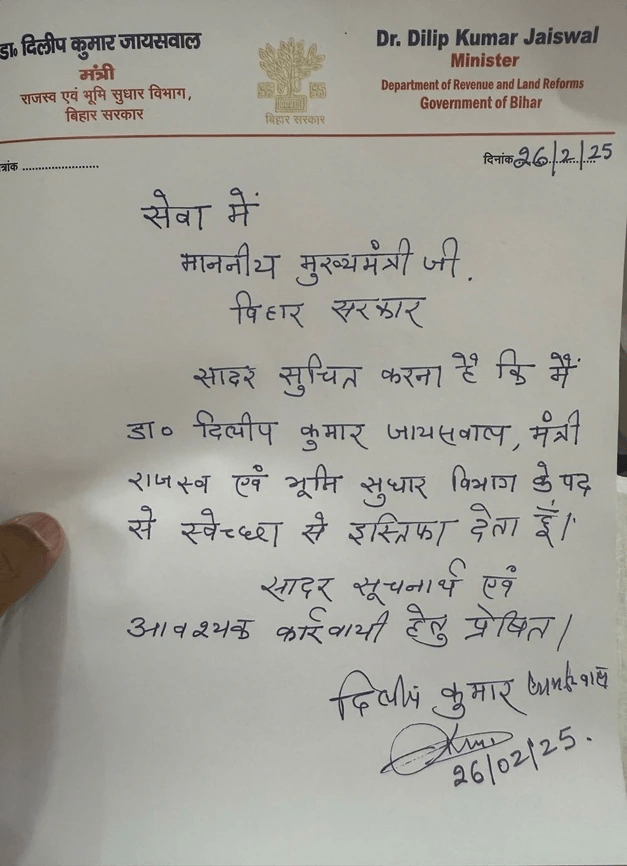 डा० दिलीप कुमार जायसवाल
मंत्री
राजस्व एवं भूमि सुधार विभाग,
बिहार सरकार
बिहार सरकार
Dr. Dilip Kumar Jaiswal
Minister
Department of Revenue and Land Reforms
Government of Bihar
त्रांक ........................
दिनांक 26/2/25
सेवा में
माननीय मुख्यमंत्री जी.
विहार सरकार
सादर सुचित करना है कि मैं
डा० दिलीप कुमार जायसवाल, मंत्री
राजस्व एवं भूमि सुधार विभाग के पद
से स्वेच्छा से इस्तिफा देता हूँ।
सादर सूचनार्थ एवं
आवश्यक कार्रवायी हेतु प्रेषित।
दिलीप कुमार
26/02/25.